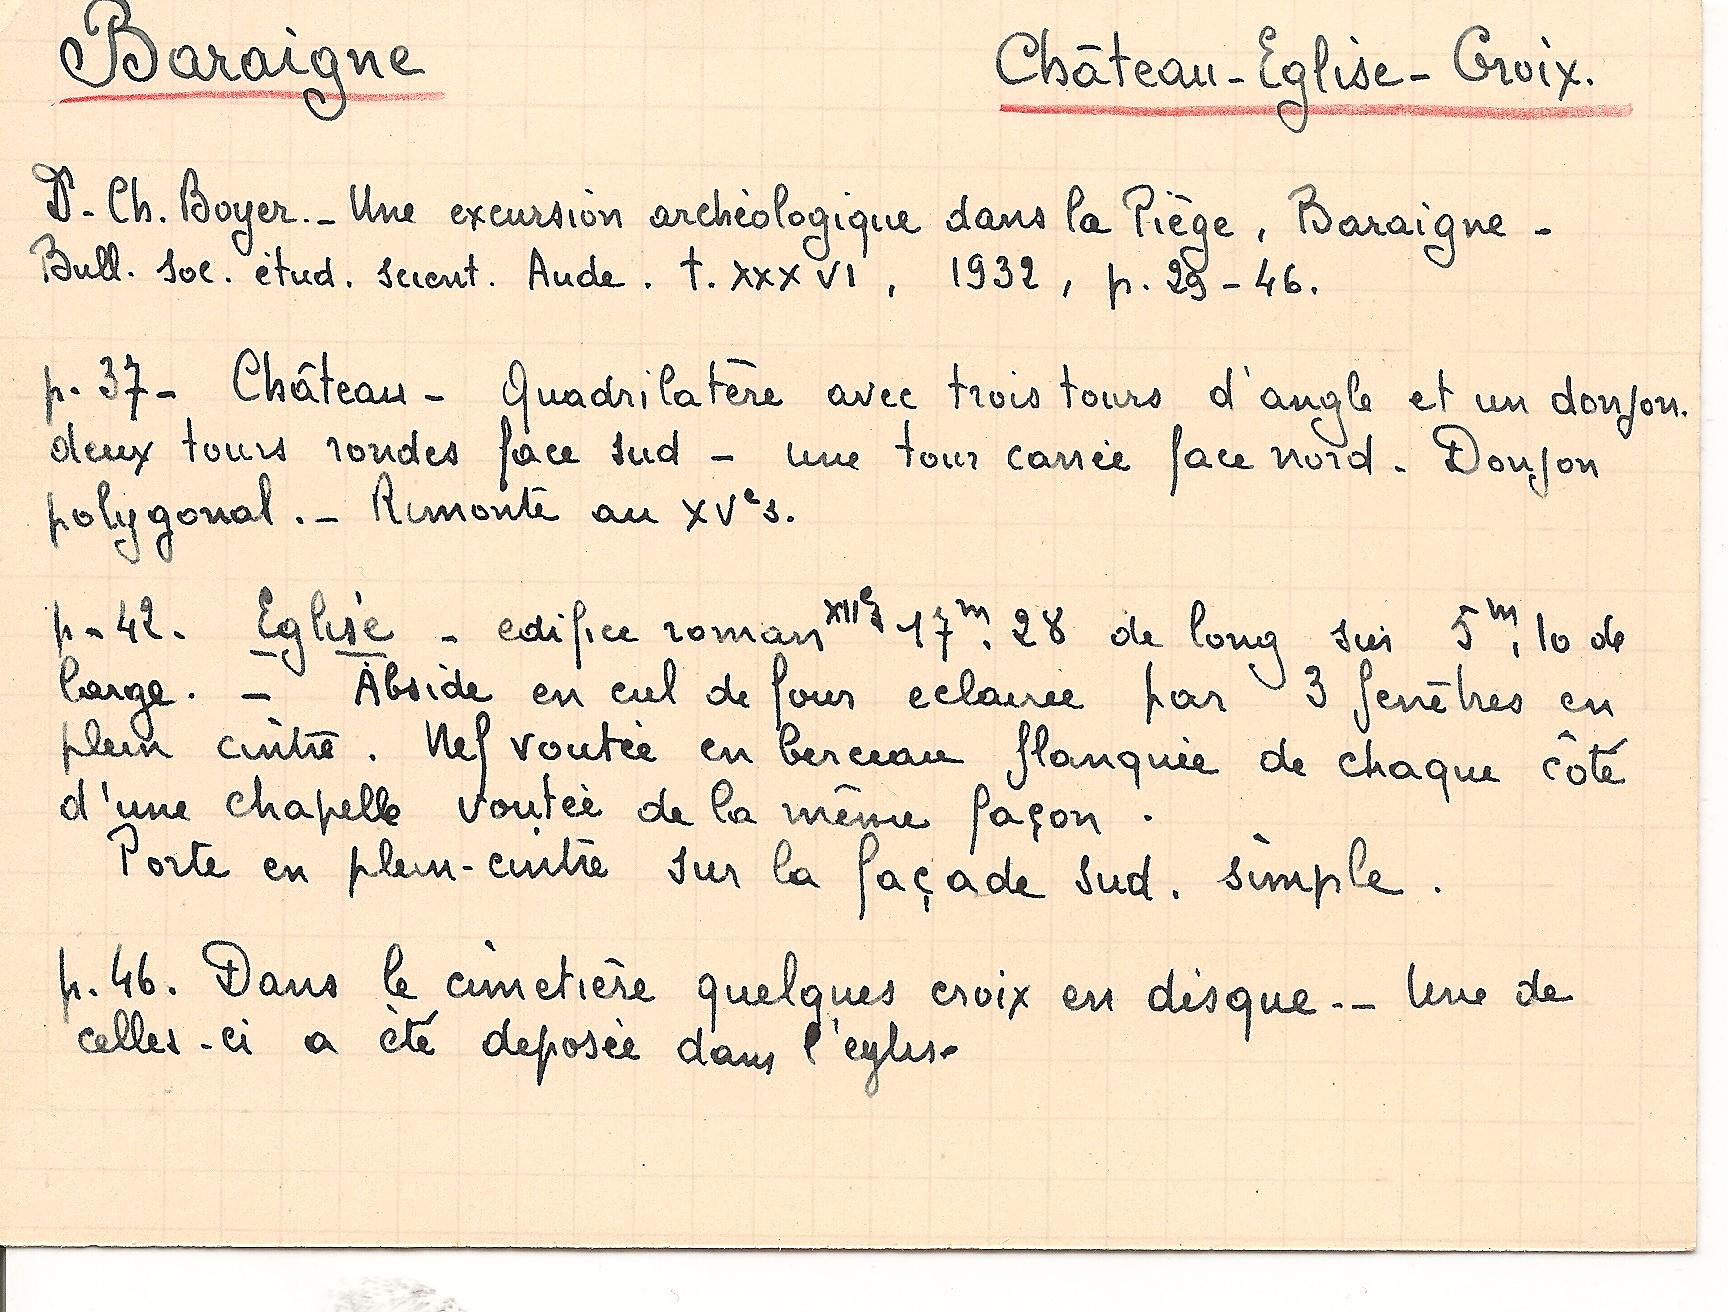 Baraigne
Château - Eglise - Croix.
Dr. Ch. Boyer. - Une excursion archéologique dans la Piège, Baraigne -
Bull. soc. étud. scient. Aude. t. XXXVI, 1932, p. 29-46.
p. 37 - Château - Quadrilatère avec trois tours d'angle et un donjon.
deux tours rondes face sud - une tour carrée face nord. Donjon
polygonal. - Remonte au XVe s.
p. 42. Eglise - edifice roman XIIes 17m. 28 de long sur 5m, 10 de
large. - Abside en cul de four eclairée par 3 fenêtres en
plein cintre. Nef voutée en berceau flanquée de chaque côté
d'une chapelle voutée de la même façon.
Porte en plein-cintre sur la façade sud. simple.
p. 46. Dans le cimetière quelques croix en disque. - Une de
celles-ci a été deposée dans l'eglise